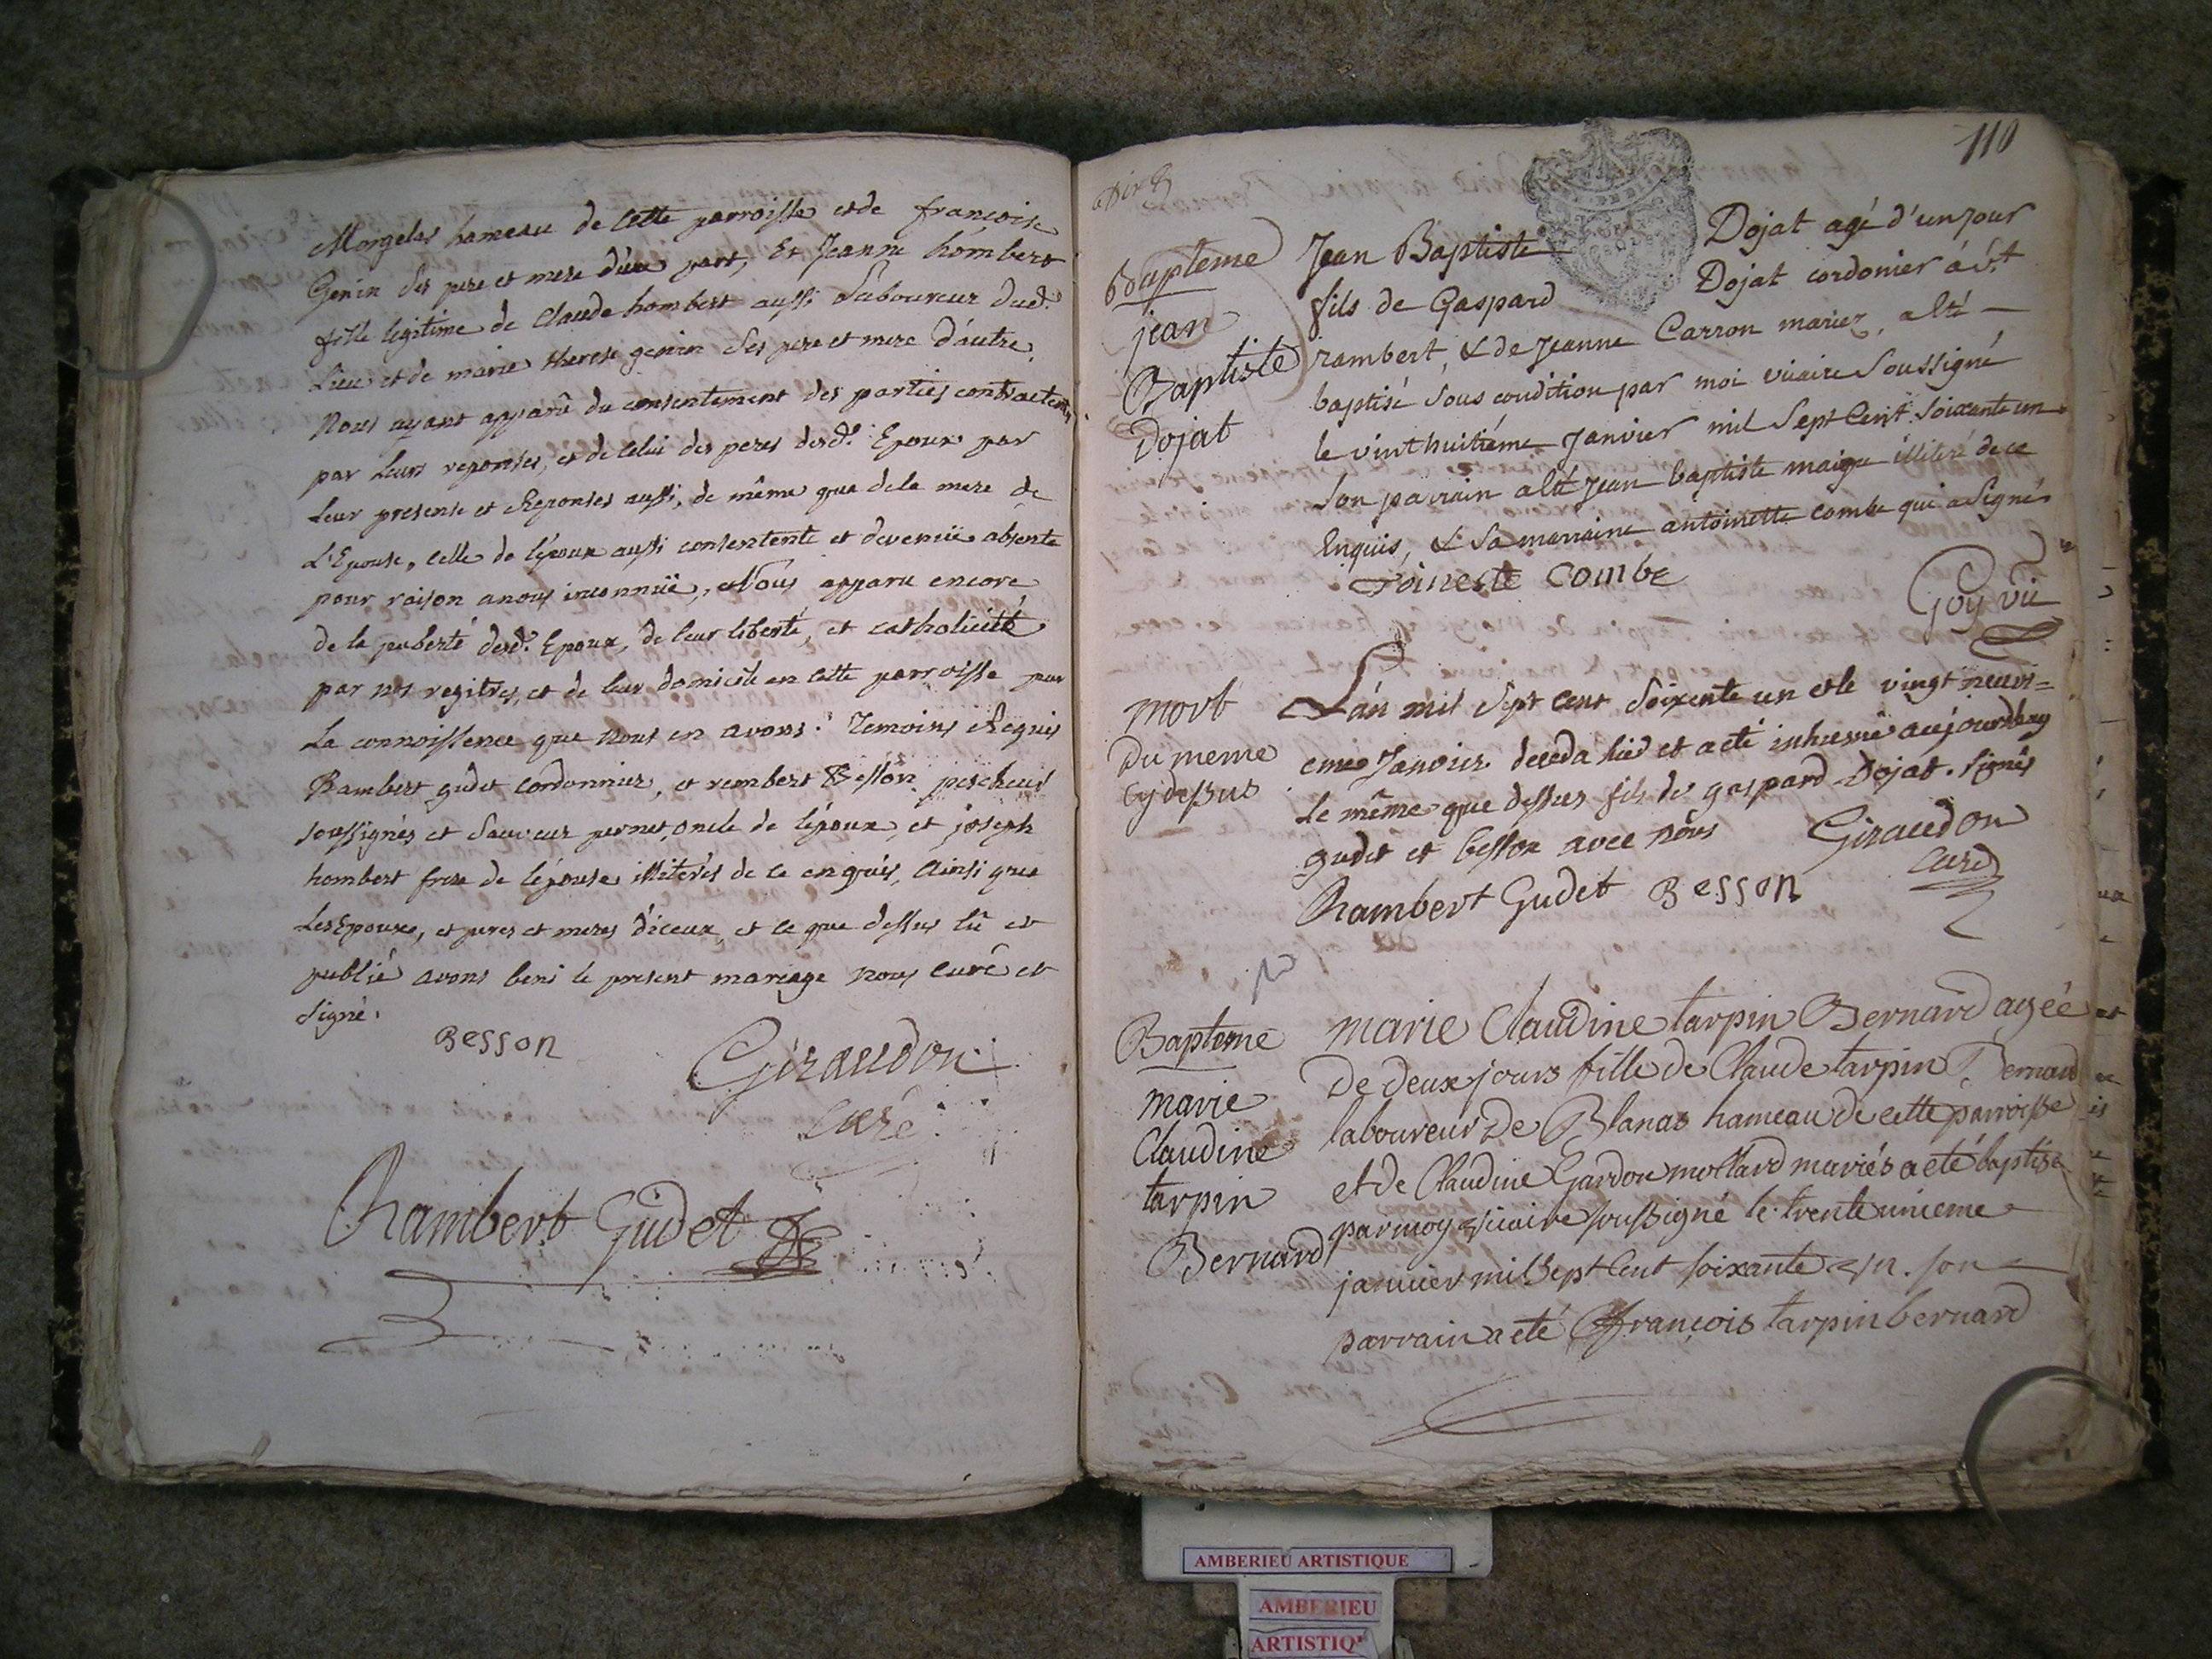 Morgelas hameau de cette parroisse et de françoise
Genin ses pere et mere d'une part, Et Jeanne hombert
fille legitime de Claude hombert aussi Laboureur dud.
Lieu et de marie therese genin ses pere et mere d'autre.
Nous ayant apparû du consentement des parties contractentes
par Leurs reponses, et de celui des peres desd. Epoux par
Leur presense et Reponses aussi, de même que de la mere de
L'Epouse, celle de l'époux aussi consentente et devenüe absente
pour raison a nous inconnüe, Nous apparu encore
de la puberté desd. Epoux, de leur liberté, et catholicité
par nos regitres, et de leur domicile en cette parroisse par
La connoissence que nous en avons. Temoins Requis
Rambert gudet Cordonnier, et rembert Besson pescheur
soussignés et Sauveur pernet, oncle de l'époux, et joseph
hombert frere de l'épouse illiterés de ce enquis, Ainsi que
Les Epoux, et peres et meres d'iceux, et ce que dessus lû et
publié avons beni le present mariage nous curé et
signé.
Besson
Giraudon
Curé
Rambert Gudet
110
Bapteme
jean
Baptiste
Dojat
Jean Baptiste Dojat agé d'un jour
fils de Gaspard Dojat cordonier à St
rambert, & de Jeanne Carron mariez, a été
baptisé sous condition par moi vicaire Soussigné
le vint huitiéme Janvier mil Sept Cent Soixante un
Son parrain a été Jean baptiste maigre illiteré de ce
Enquis, & Sa marraine antoinette combe qui a Signé
Toineste Combe
Goy vic
mort
Du meme
Cy dessus
L'an mil Sept Cent Soixente un et le vingt neuvi=
eme Janvier deceda hier et a eté inhumé aujourdhuy
Le même que dessus fils de gaspard Dojat. Signés
gudet et besson avec nous Giraudon
Curé
Rambert Gudet Besson
Bapteme
marie
Claudine
tarpin
Bernard
marie Claudine tarpin Bernard agée
De deux jours fille de Claude tarpin Bernard
laboureur de Blanas hameau de cette parroisse
et de Claudine Gardon mollard mariés a eté baptisée
par moy vicaire soussigné le trente unieme
janvier mil Sept Cent soixante un. son
parrain a eté françois tarpin bernard
AMBERIEU ARTISTIQUE
AMBERIEU
ARTISTIQ